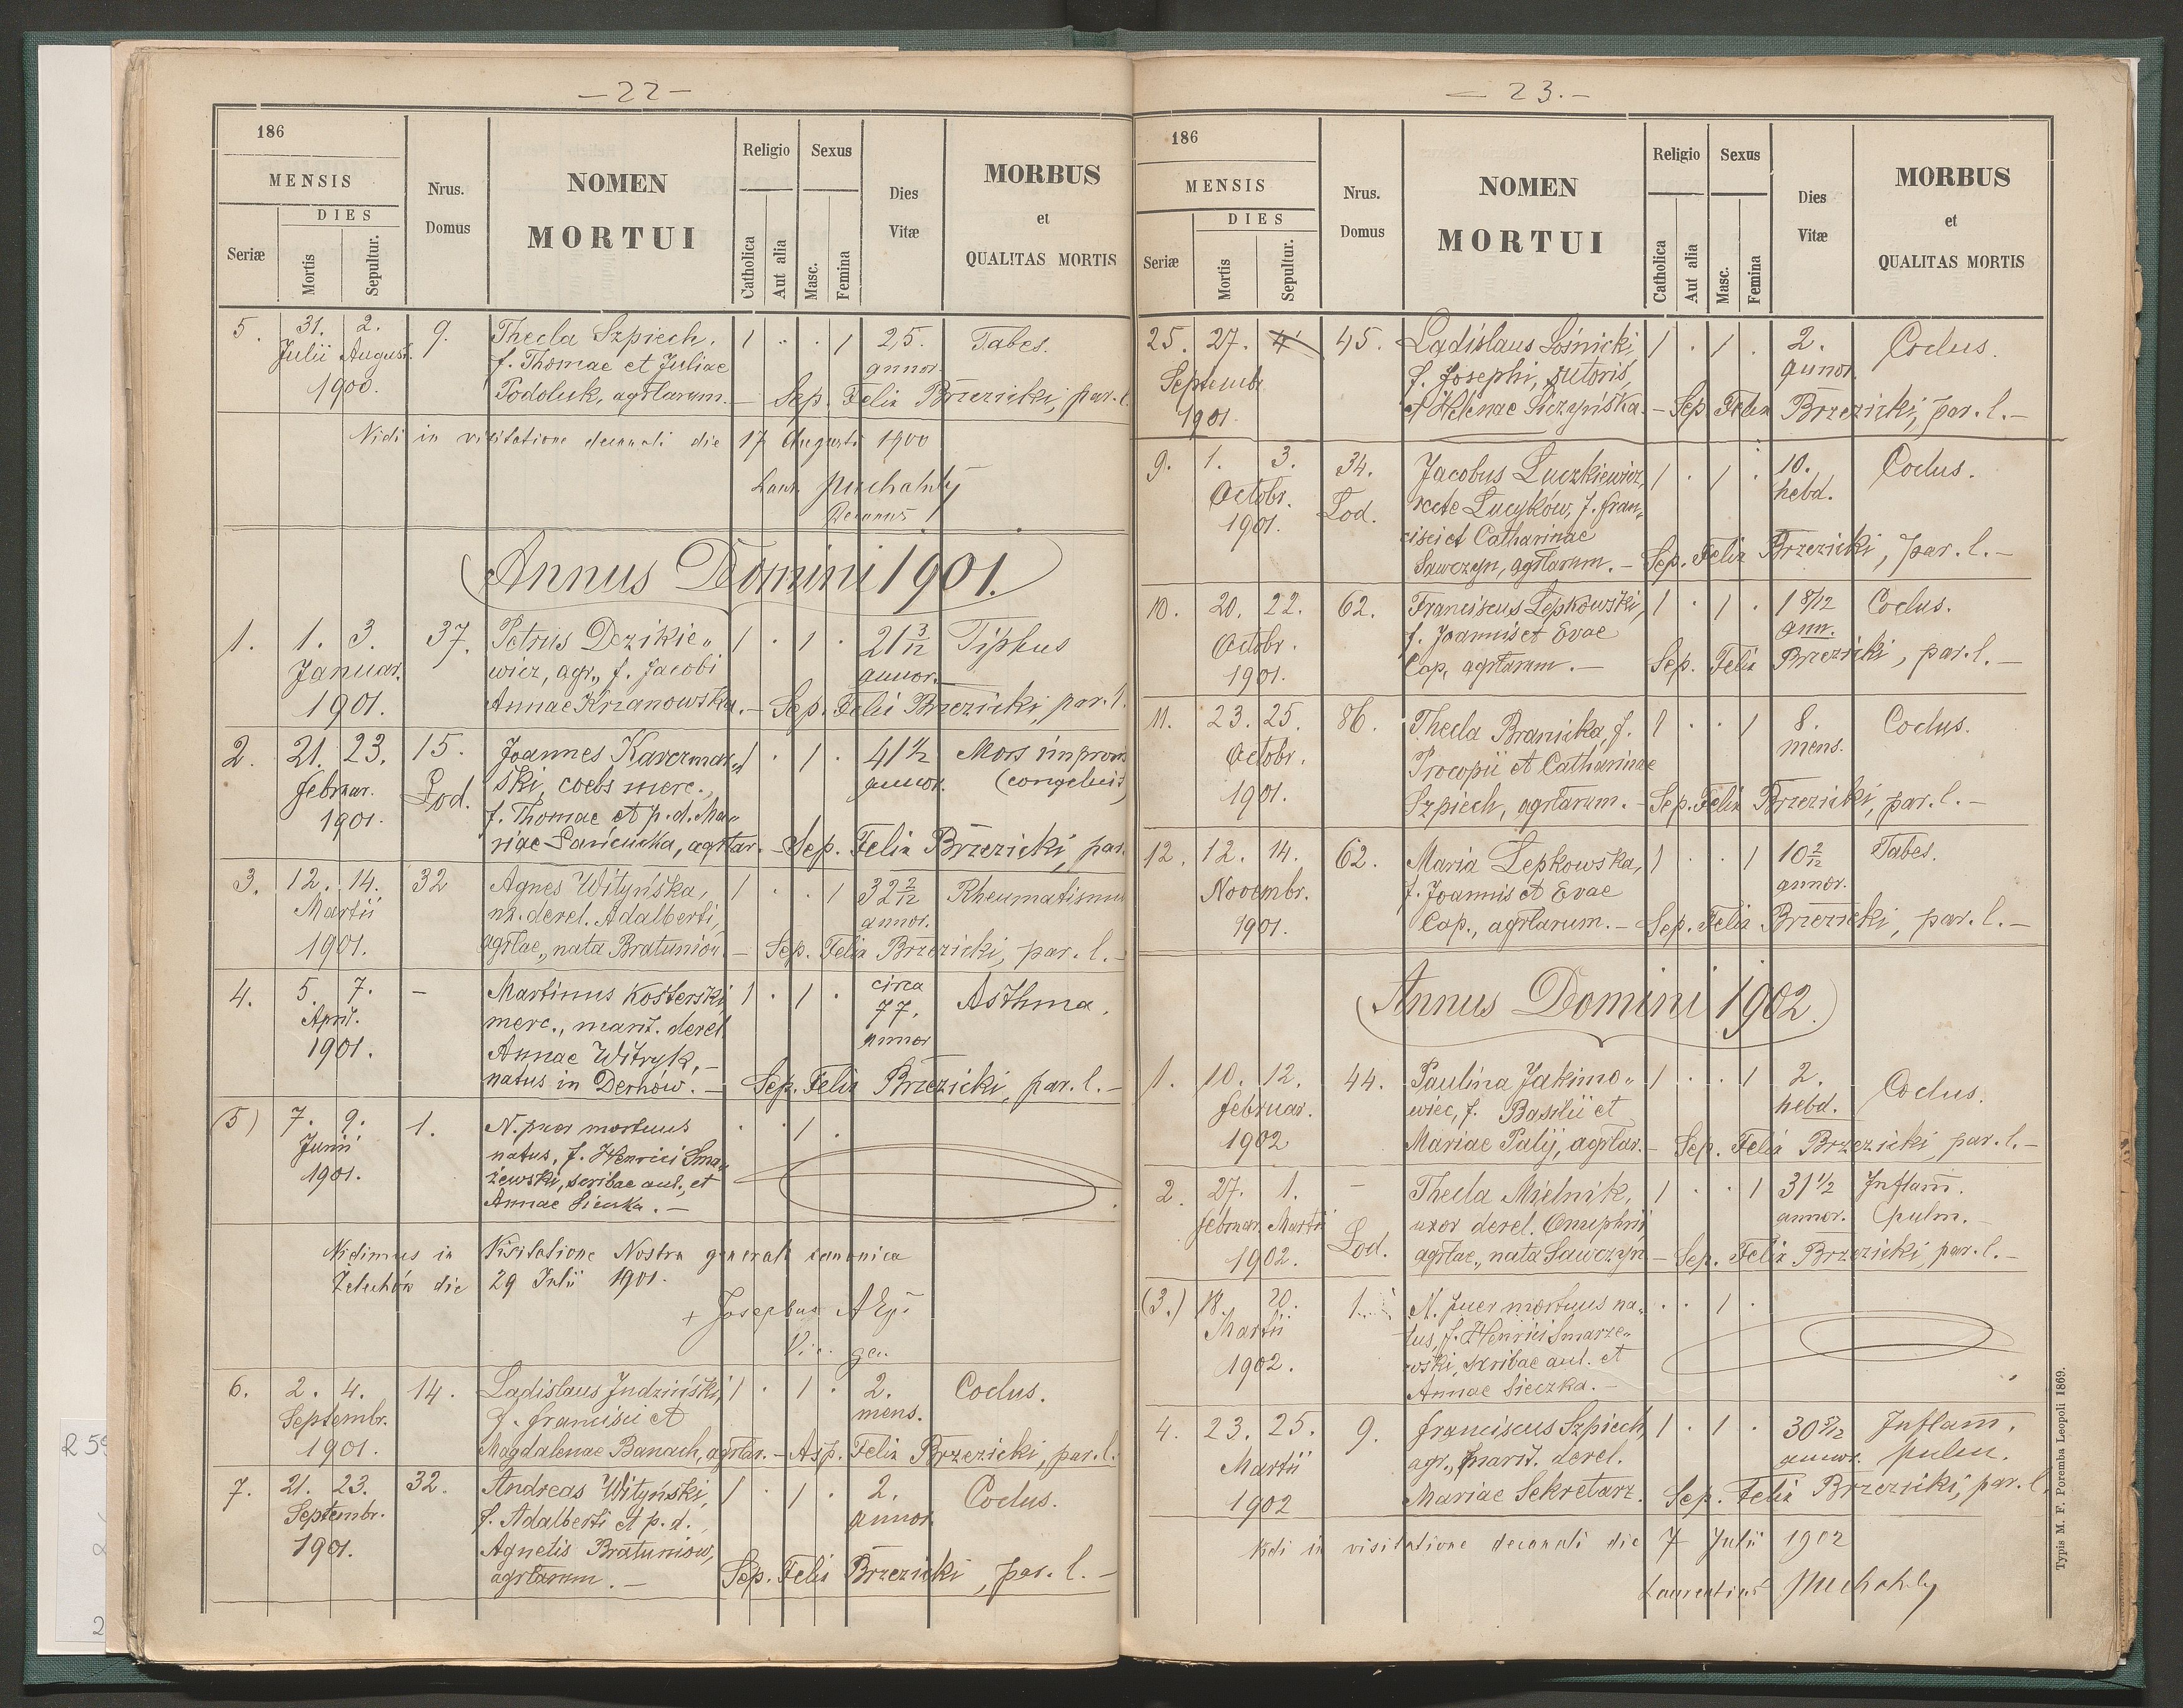 — 22 —
186
MENSIS
DIES
Seriæ
Mortis
Sepultur.
Nrus.
Domus
NOMEN
MORTUI
Religio
Catholica
Aut alia
Sexus
Masc.
Femina
Dies
Vitæ
MORBUS
et
QUALITAS MORTIS
5. 31. 2. 9. Thecla Szpiech, 1 . . 1 25. Tabes.
Julii August. f. Thomae et Juliae annor.
1900. Podoluk, agrlarum. — Sep. Felix Brzezicki, par. l.
Vidi in visitatione decanali die 17 Augusti 1900
Decanus
Annus Domini 1901.
1. 1. 3. 37. Petrus Dezikie„ 1 . 1 . 21 3/12 Tiphus
Januar. wicz, agr., f. Jacobi annor.
1901. Annae Krzanowska. — Sep. Felix Brzezicki, par. l.
2. 21. 23. 15. Joannes Kaczmar„ 1 . 1 . 41 1/2 Mors improv
Februar. Lod. ski, coebs merc., annor. (congeluit)
1901. f. Thomae et p. d. Ma„
riae Łańcucka, agrlar. — Sep. Felix Brzezicki, par.
3. 12. 14. 32 Agnes Wityńska, 1 . . 1 32 2/12 Rheumatismu
Martii ux. derel. Adalberti, annor.
1901. agrlae, nata Bratuniow. — Sep. Felix Brzezicki, par. l. —
4. 5. 7. — Martinus Kosterski, 1 . 1 . circa 77. Asthma.
April. merc., marit. derel. annor
1901. Annae Witryk, —
natus in Derhów. — Sep. Felix Brzezicki, par. l. —
(5) 7. 9. 1. N. puer mortuus . . 1 .
Junii natus, f. Henrici Sma„
1901. żewski, scribae aul., et
Annae Sieczka. —
Vidimus in Visitatione Nostra generali canonica
Żeluchów die 29 Julii 1901.
+ Josephus
Vic. gen.
6. 2. 4. 14. Ladislaus Judziński, 1 . 1 . 2. Coclus.
Septembr. f. Francisci et mens.
1901. Magdalenae Banach, agrlar. — Sep. Felix Brzezicki, par. l.
7. 21. 23. 32. Andreas Wityński, 1 . 1 . 2. Coclus.
Septembr. f. Adalberti et p. d. annor.
1901. Agnetis Bratuniow,
agrlarum. — Sep. Felix Brzezicki, par. l. —
— 23. —
186
MENSIS
DIES
Seriæ
Mortis
Sepultur.
Nrus.
Domus
NOMEN
MORTUI
Religio
Catholica
Aut alia
Sexus
Masc.
Femina
Dies
Vitæ
MORBUS
et
QUALITAS MORTIS
25. 27. 45. Ladislaus Łośnicki, 1 . 1 . 2. Coclus.
Septembr. f. Josephi, sutoris, annor.
1901. et Helenae — Sep. Felix Brzezicki, par. l. —
9. 1. 3. 34. Jacobus Luczkiewicz, 1 . 1 . 10. Coclus.
Octobr. Lod. recte Lucyków, f. Fran„ hebd.
1901. cisci et Catharinae
Sawczyn, agrlarum. — Sep. Felix Brzezicki, par. l. —
10. 20. 22. 62. Franciscus Lepkowski, 1 . 1 . 1 8/12 Coclus.
Octobr. f. Joannis et Evae ann.
1901. Cap, agrlarum. — Sep. Felix Brzezicki, par. l. —
11. 23. 25. 86. Thecla Branicka, f. 1 . . 1 8. Coclus.
Octobr. Procopii et Catharinae mens.
1901. Szpiech, agrlarum. — Sep. Felix Brzezicki, par. l. —
12. 12. 14. 62. Maria Lepkowska, 1 . . 1 10 2/12 Tabes.
Novembr. f. Joannis et Evae annor.
1901. Cap., agrlarum. — Sep. Felix Brzezicki, par. l. —
Annus Domini 1902.
1. 10. 12. 44. Paulina Jakimo„ 1 . . 1 2. Coclus.
Februar. wiec, f. Basilii et hebd.
1902 Mariae Palij, agrlar. — Sep. Felix Brzezicki par. l. —
2. 27. 1. — Thecla Mielnik, 1 . . 1 31 1/2 Inflam.
Februar. Martii Lod. uxor derel. Onuphrii, annor. pulm.
1902. agrlae, nata Sawczyn — Sep. Felix Brzezicki, par. l. —
(3.) 18. 20. 1. N. puer mortuus na„ . . 1 .
Martii tus, f. Henrici Smarze„
1902. wski, scribae aul. et
Annae Sieczka. —
4. 23. 25. 9. Franciscus Szpiech, 1 . 1 . 30 5/12 Inflam.
Martii agr., marit. derel. annor. pulm.
1902 Mariae Sekretarz. Sep. Felix Brzezicki, par. l.
Vidi in visitatione decanali die 7 Julii 1902
Laurentius
Typis M. F. Poremba Leopoli 1869.